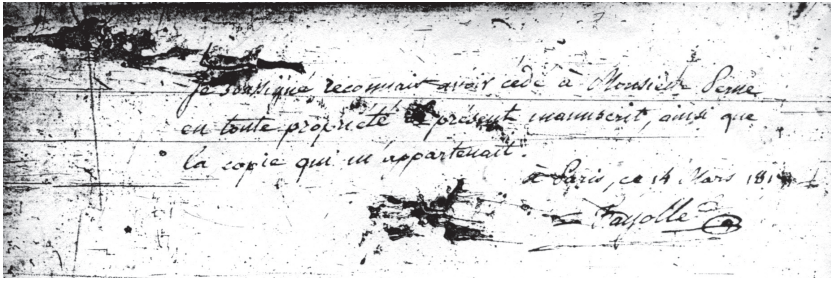 Je soussigné reconnait avoir cédé à Monsieur Perne
en toute propriété le présent manuscrit, ainsi que
la copie qui m'appartenait.
à Paris, ce 14 Mars
Fayolle